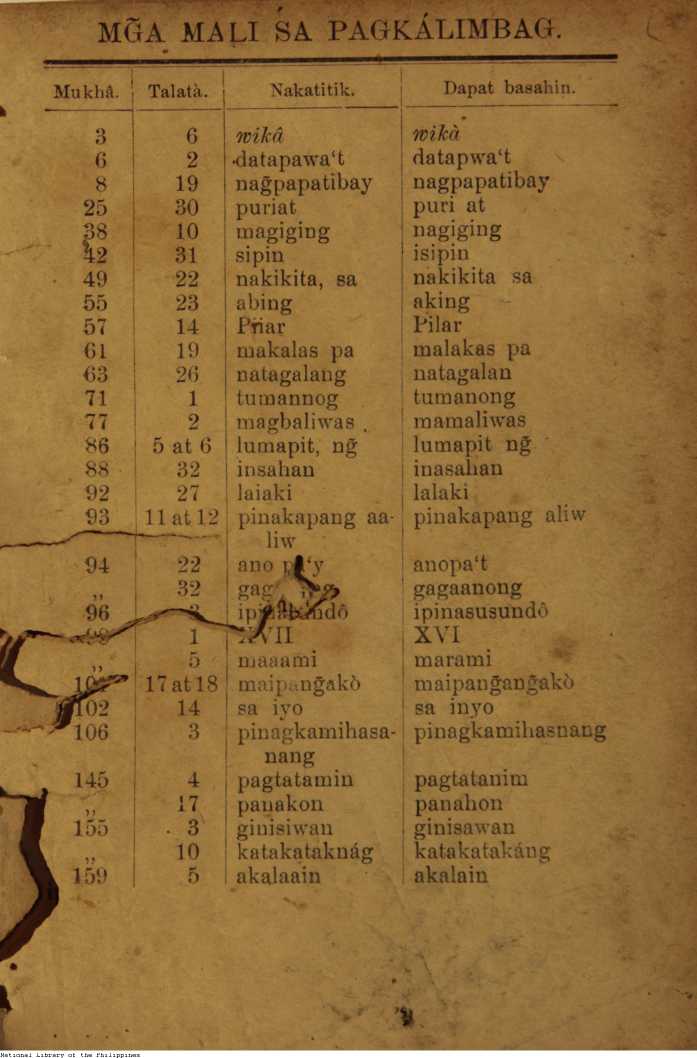 MG̃A MALI SA PAGKÁLIMBAG.
Mukhâ. Talatà. Nakatitik. Dapat basahin.
3 6 wikâ wikà
6 2 datapawa‘t datapwa‘t
8 19 nag̃papatibay nagpapatibay
25 30 puriat puri at
38 10 magiging nagiging
42 31 sipin isipin
49 22 nakikita, sa nakikita sa
55 23 abing aking
57 14 Priar Pilar
61 19 makalas pa malakas pa
63 26 natagalang natagalan
71 1 tumannog tumanong
77 2 magbaliwas mamaliwas
86 5 at 6 lumapit, ng̃ lumapit ng̃
88 32 insahan inasahan
92 27 laiaki lalaki
93 11 at 12 pinakapang aa- pinakapang aliw
liw
94 22 ano anopa‘t
„ 32 gagaanong
96 3 ipinasusundô
1 XVII XVI
„ 5 maaami marami
17 at 18 maipang̃akò maipang̃ang̃akò
102 14 sa iyo sa inyo
106 3 pinagkamihasa- pinagkamihasnang
nang
145 4 pagtatamin pagtatanim
„ 17 panakon panahon
155 3 ginisiwan ginisawan
„ 10 katakataknág katakatakáng
159 5 akalaain akalain
National Library of the Philippines